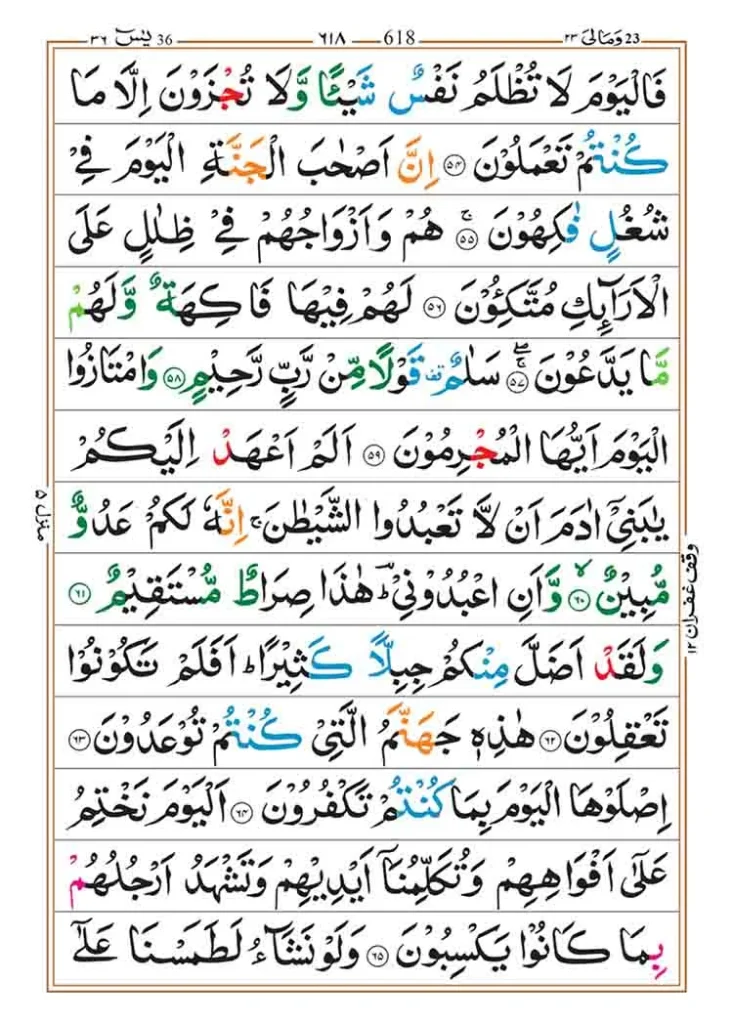 وَمَالِیَ 23 ٢٣ 618 ٦١٨ یٰسٓ 36 ٣٦
فَالْيَوْمَ لَا تُظْلَمُ نَفْسٌ شَيْـًٔا وَّلَا تُجْزَوْنَ اِلَّا مَا
كُنْتُمْ تَعْمَلُوْنَ ﴿٥٤﴾ اِنَّ اَصْحٰبَ الْجَنَّةِ الْيَوْمَ فِيْ
شُغُلٍ فٰكِهُوْنَ ۚ﴿٥٥﴾ هُمْ وَاَزْوَاجُهُمْ فِيْ ظِلٰلٍ عَلَى
الْاَرَآئِكِ مُتَّكِـُٔوْنَ ﴿٥٦﴾ لَهُمْ فِيْهَا فَاكِهَةٌ وَّلَهُمْ
مَّا يَدَّعُوْنَ ۖۚ﴿٥٧﴾ سَلٰمٌ قف قَوْلًا مِّنْ رَّبٍّ رَّحِيْمٍ ﴿٥٨﴾ وَامْتَازُوا
الْيَوْمَ اَيُّهَا الْمُجْرِمُوْنَ ﴿٥٩﴾ اَلَمْ اَعْهَدْ اِلَيْكُمْ
يٰبَنِيْٓ اٰدَمَ اَنْ لَّا تَعْبُدُوا الشَّيْطٰنَ ۚ اِنَّهٗ لَكُمْ عَدُوٌّ
مُّبِيْنٌ ۙ﴿٦٠﴾ وَّاَنِ اعْبُدُوْنِيْ ؕ هٰذَا صِرَاطٌ مُّسْتَقِيْمٌ ﴿٦١﴾
وَلَقَدْ اَضَلَّ مِنْكُمْ جِبِلًّا كَثِيْرًا ؕ اَفَلَمْ تَكُوْنُوْا
تَعْقِلُوْنَ ﴿٦٢﴾ هٰذِهٖ جَهَنَّمُ الَّتِيْ كُنْتُمْ تُوْعَدُوْنَ ﴿٦٣﴾
اِصْلَوْهَا الْيَوْمَ بِمَا كُنْتُمْ تَكْفُرُوْنَ ﴿٦٤﴾ اَلْيَوْمَ نَخْتِمُ
عَلٰٓى اَفْوَاهِهِمْ وَتُكَلِّمُنَآ اَيْدِيْهِمْ وَتَشْهَدُ اَرْجُلُهُمْ
بِمَا كَانُوْا يَكْسِبُوْنَ ﴿٦٥﴾ وَلَوْ نَشَآءُ لَطَمَسْنَا عَلٰٓى
منزل ٥
وقف غفران ١٢